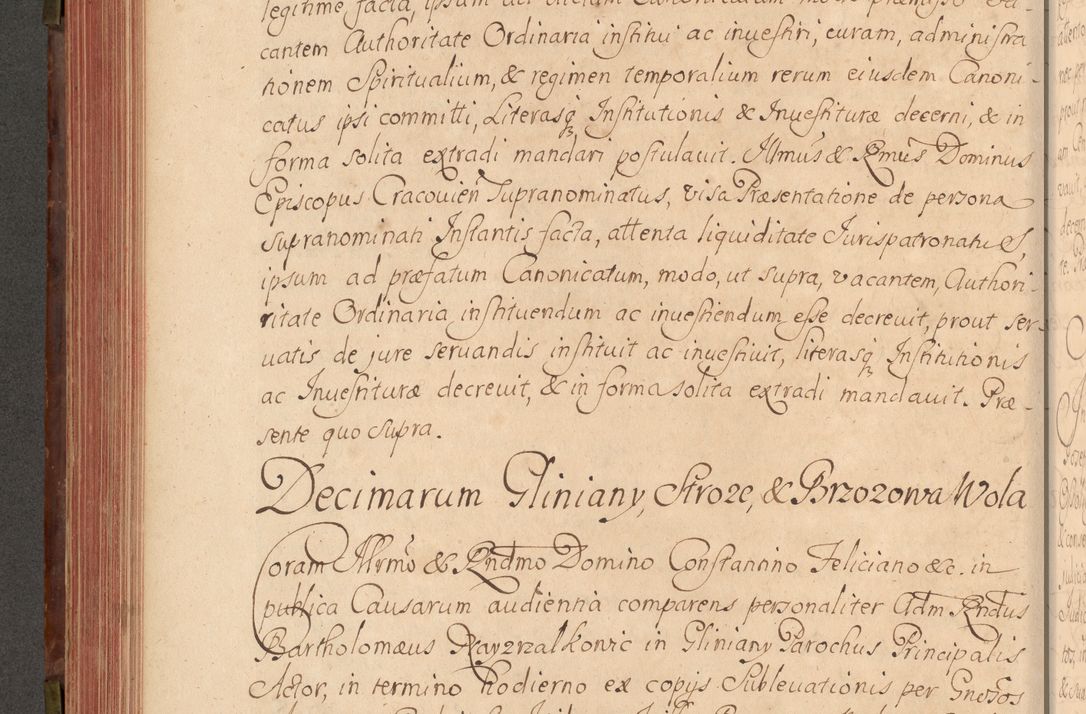 legitime facta, ipsum ad dictum Canonicatum modo præmisso va-
cantem Authoritate Ordinaria institui ac inuestiri, curam, administra
tionem Spiritualium, & regimen temporalium rerum eiusdem Canoni-
catus ipsi committi, Literasq3 Institutionis & Inuestituræ decerni, & in
forma solita extradi mandari postulauit. Illmus & Rmus Dominus
Episcopus Cracouien Supranominatus, visa Præsentatione de persona
supranominati Instantis facta, attenta liquiditate Iurispatronatus,
ipsum ad præfatum Canonicatum, modo, ut supra, vacantem, Authori-
ritate Ordinaria instituendum ac inuestiendum esse decreuit, prout ser
uatis de jure seruandis instituit ac inuestiuit, literasq3 Institutionis
ac Inuestituræ decreuit, & in forma solita extradi mandauit. Præ-
sente quo supra.
Decimarum Gliniany, Stroze, & Brzozowa Wola
Coram Illrmo & Rndmo Domino Constantino Feliciano &c. in
publica Causarum audientia comparens personaliter Adm Rndus
Bartholomæus in Gliniany Parochus Principalis
Actor, in termino hodierno ex copijs Subleuationis per Gnosos